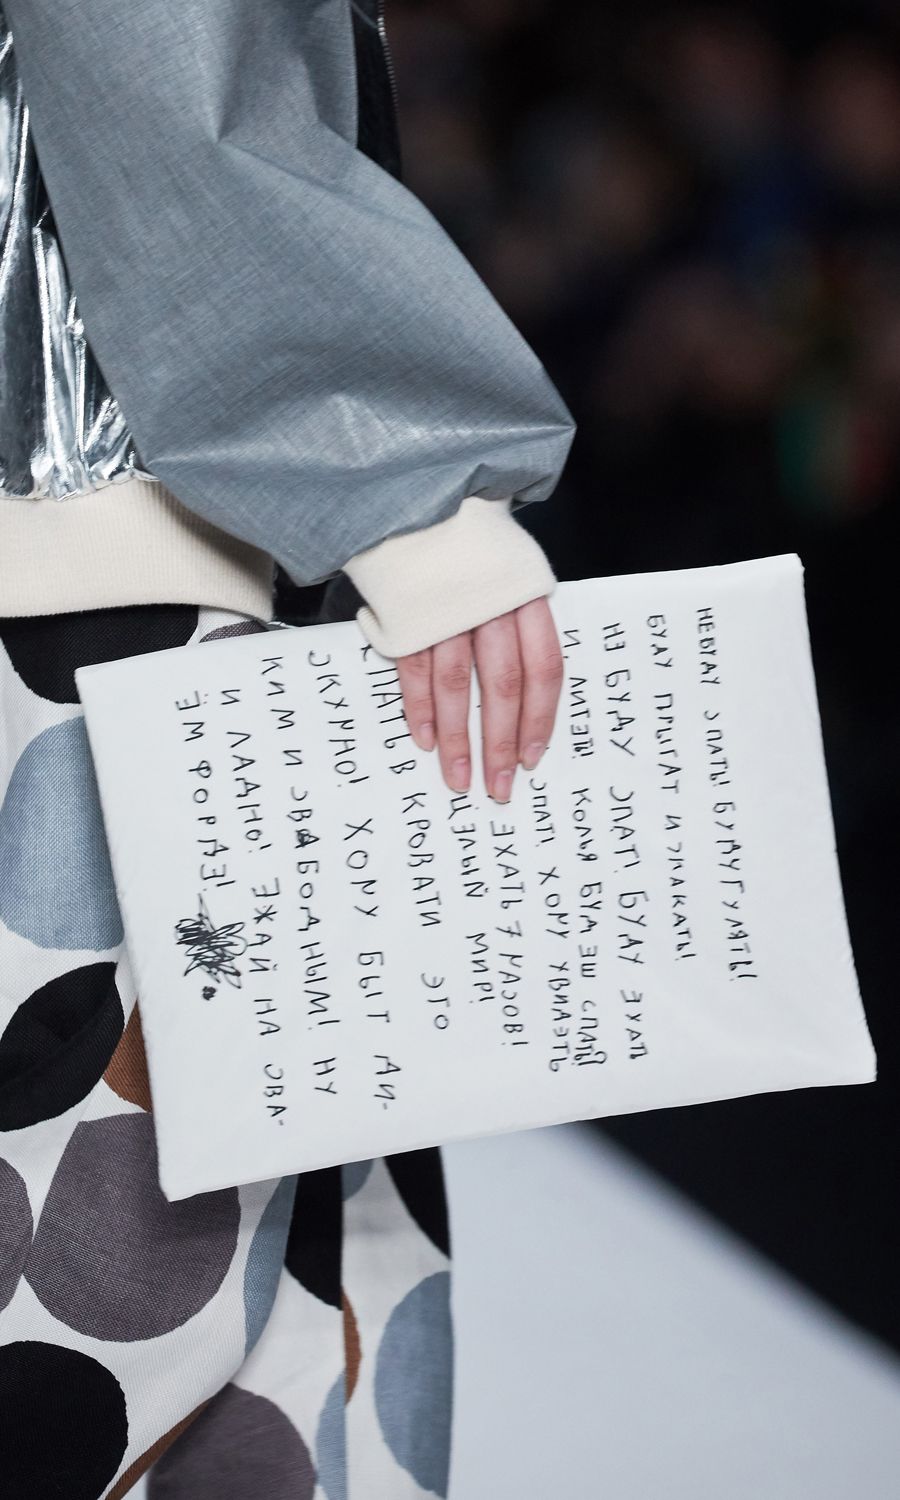 НЕБУДУ СПАТЬ! БУДУ ГУЛЯТЬ!
БУДУ ПРЫГАТ И СКАКАТЬ!
НЭ БУДУ СПАТ! БУДУ ЭХАТ
И ЛИТЭТ! КОЛЬЯ БУДЭШ СПАТЬ?
СПАТ! ХОЧУ УВИДЭТЬ
ЭХАТЬ 7 ЧАСОВ!
ЦЭЛЫЙ МИР!
СПАТЬ В КРОВАТИ ЭГО
СКУЧНО! ХОЧУ БЫТ ДИ-
КИМ И СВАБОДНЫМ! НУ
И ЛАДНО! ЭЖАЙ НА СВА-
ЁМ ФОРДЭ!